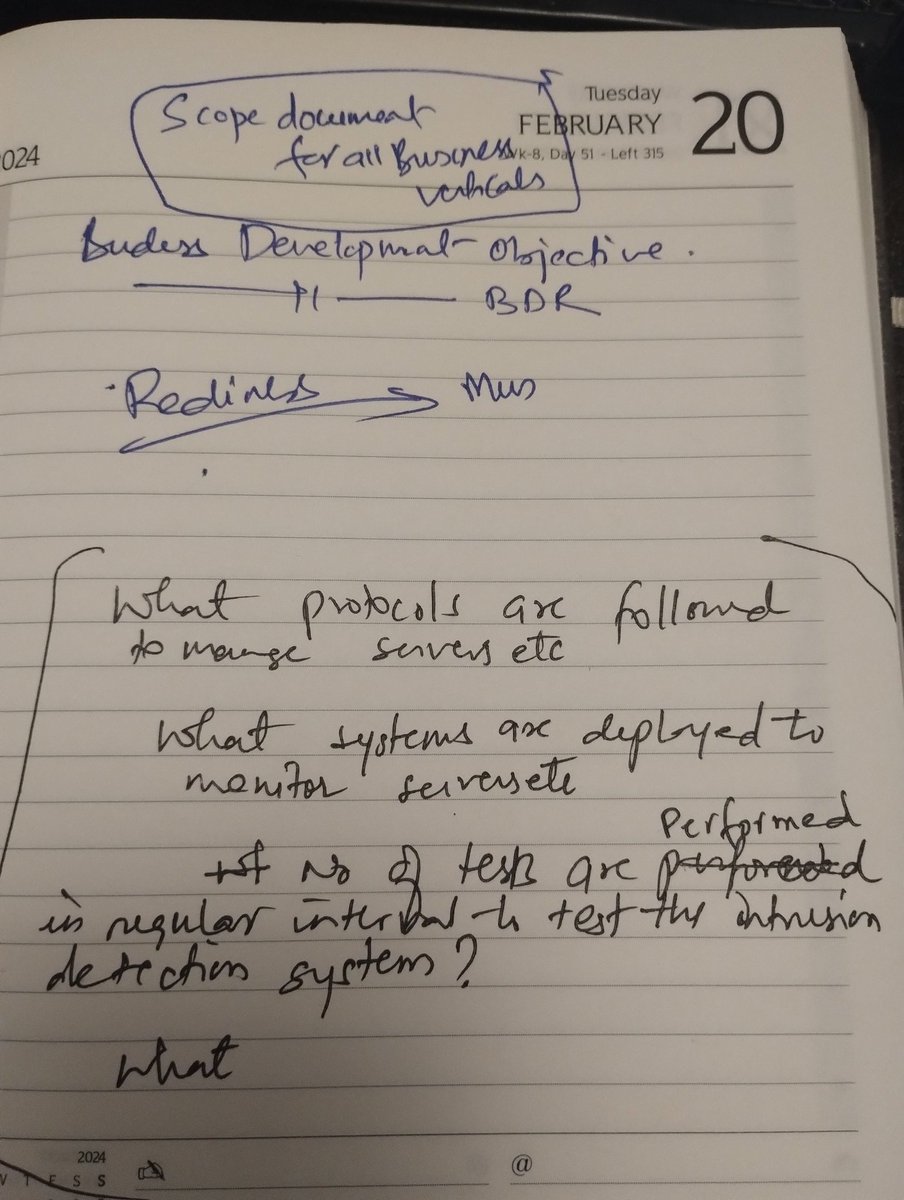 2024
Tuesday
FEBRUARY
20
Wk-8, Day 51 - Left 315
Scope document
for all Business
verticals
Development Objective.
BDR
Rediness
What protocols are followed
to manage servers etc
What systems are deployed to
monitor servers etc
Performed
No of tests are
in regular interval to test the intrusion
detection system?
What
2024
V T F S S
@